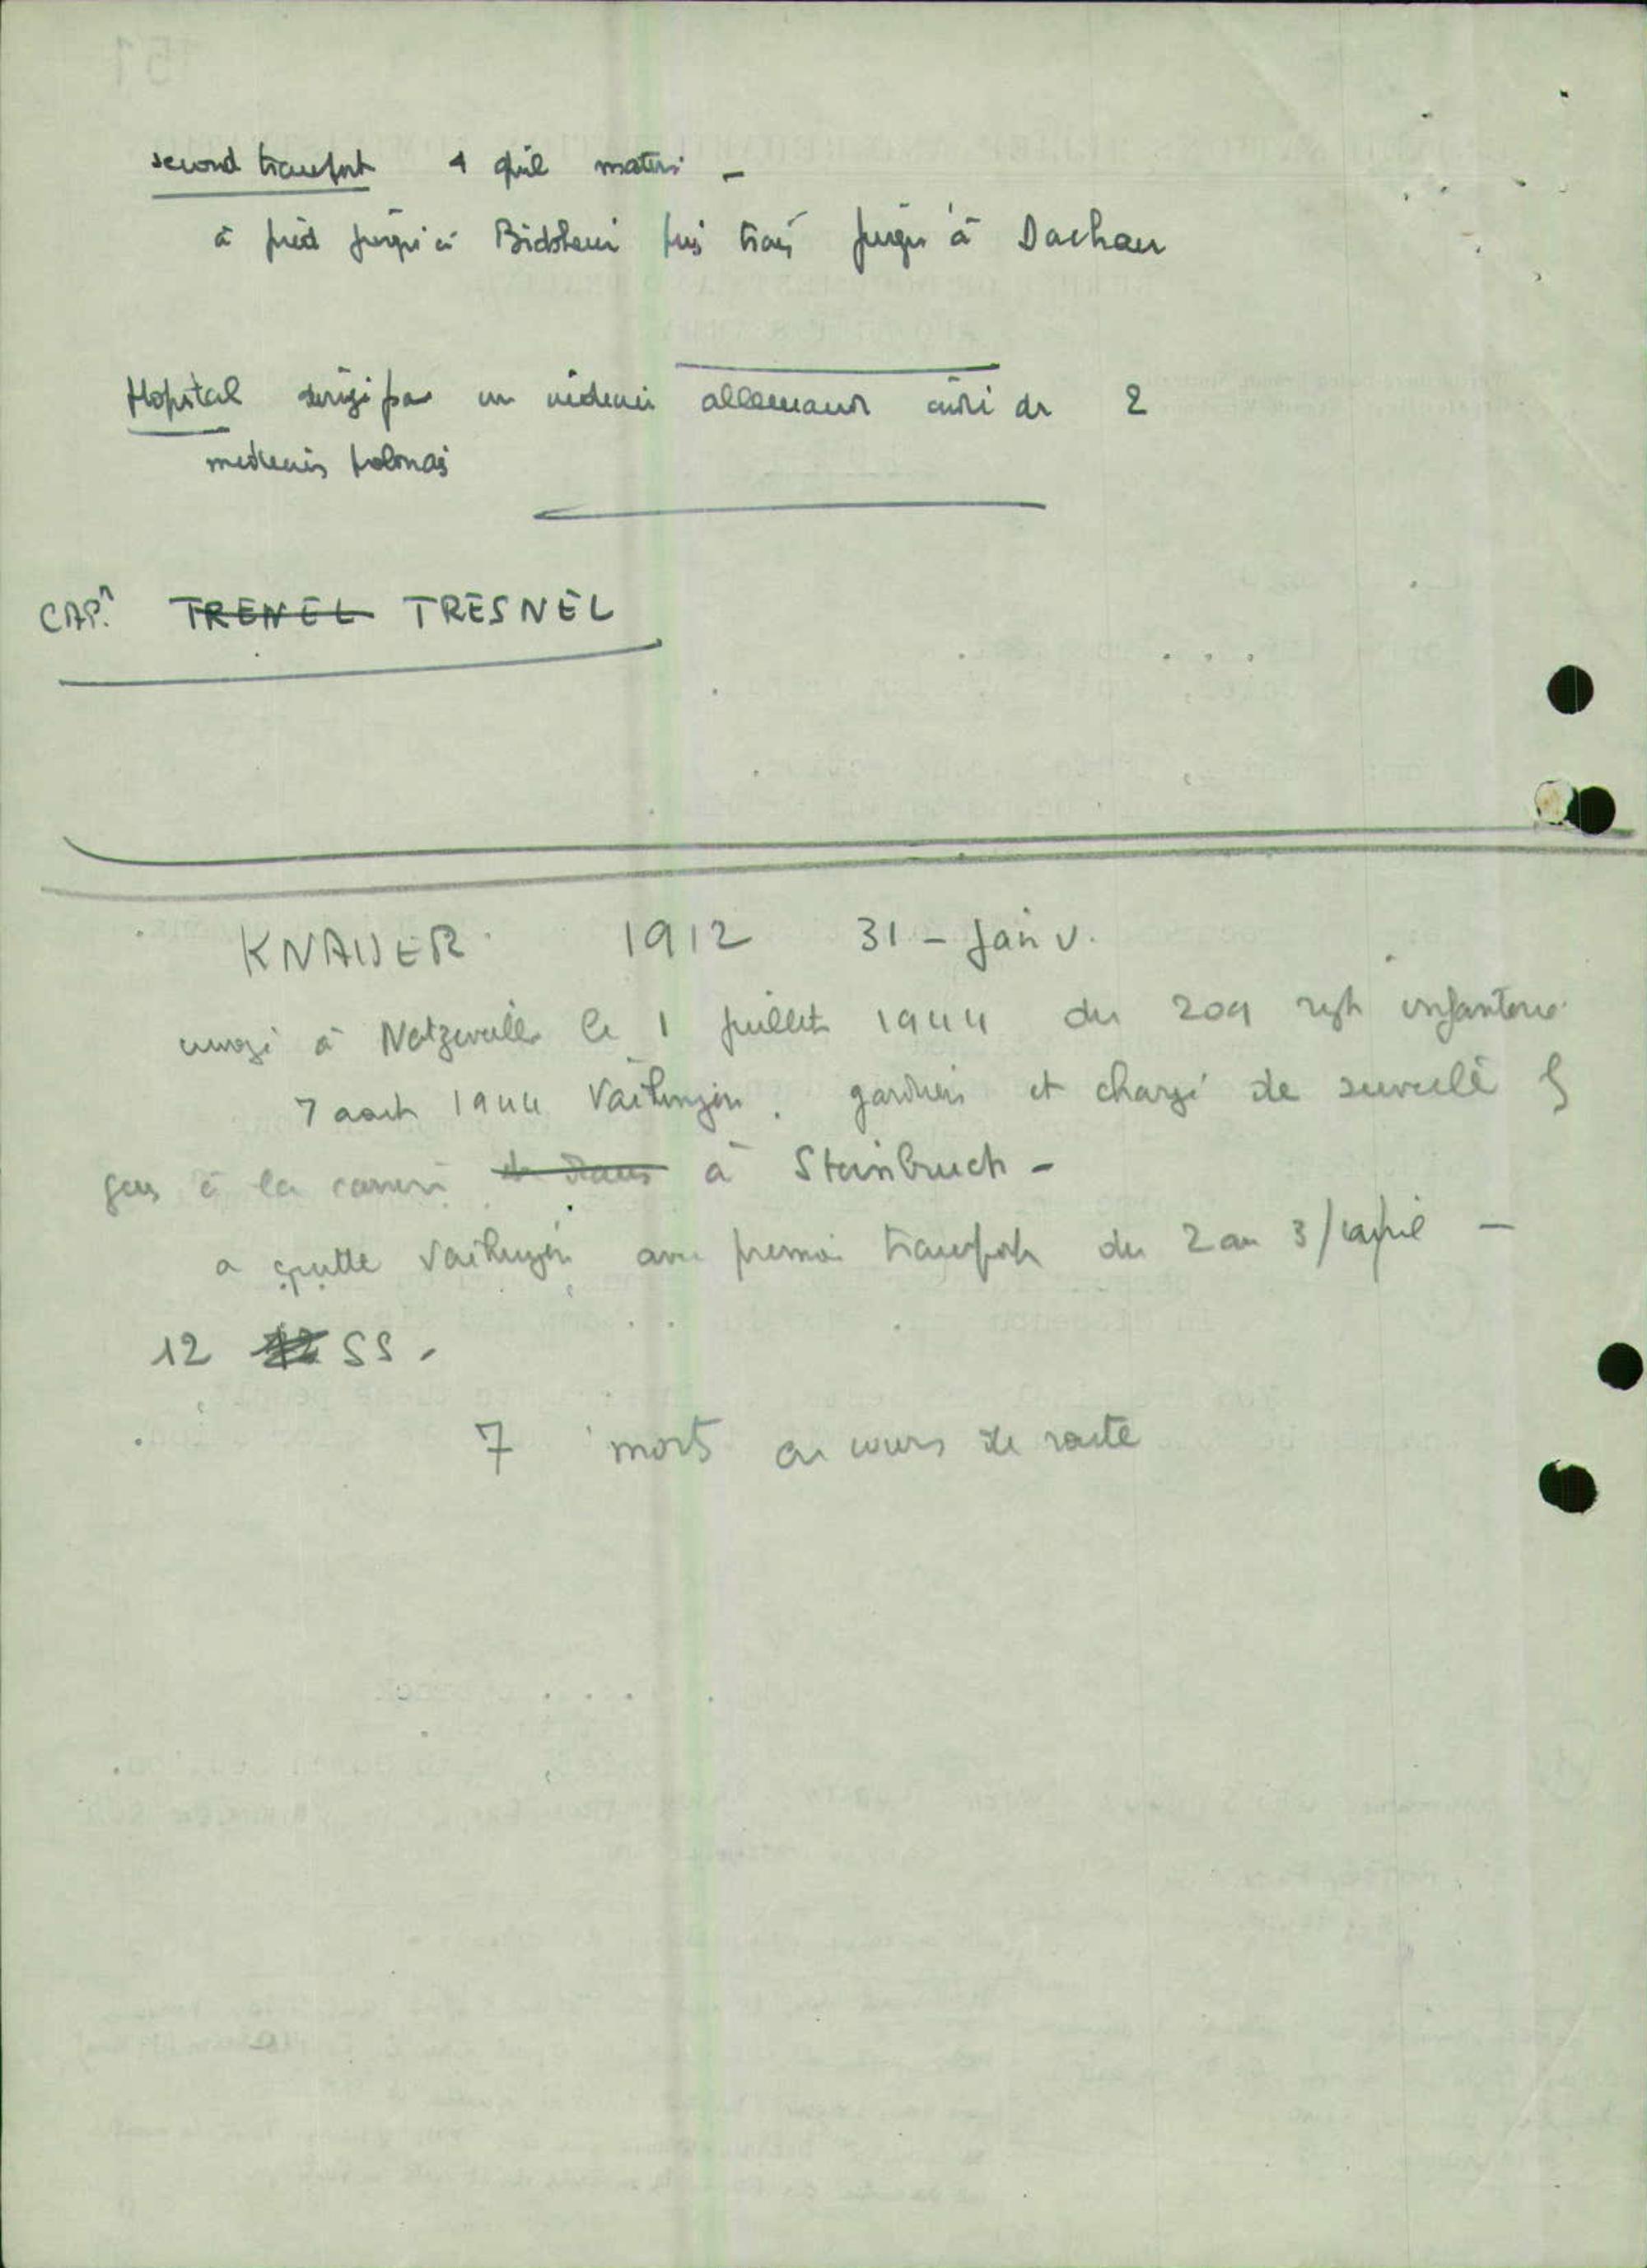 second transport 4 avril matin -
à pied jusqu'à puis train jusqu'à Dachau
Hopital dirigé par un médecin allemand aidé de 2
médecins polonais
CAP. TRENEL TRESNEL
KNAUER 1912 31 - Janv.
à Natzweiller le 1 juillet 1944 du 209 regt infanterie
7 aout 1944 Vaihingen. gardien et chargé de
à la à Steinbruch -
a quitté Vaihingen avec premier transport du 2 au 3/ avril -
12 SS -
7 morts au cours de route